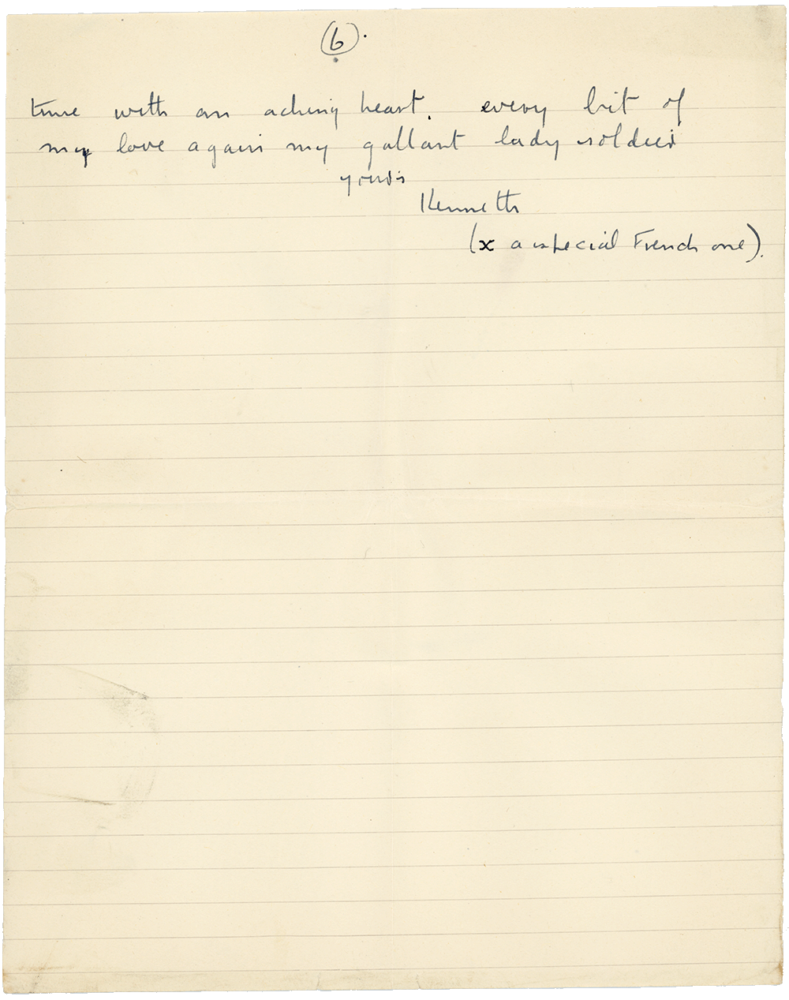 (6).
time with an aching heart. every bit of
my love again my gallant lady soldier
yours
Kenneth
(x a special French one).